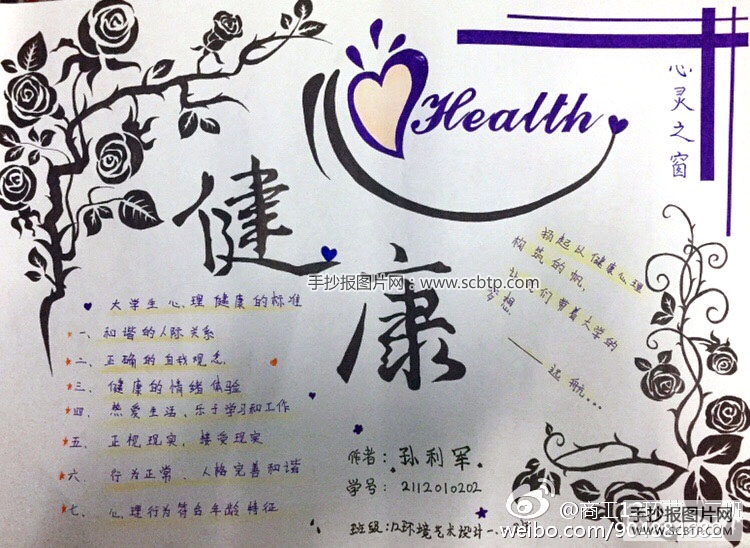 Health
心灵之窗
健康
手抄报图片网：www.scbtp.com
扬起以健康心理
构筑的帆，
让我们带着大学的
梦想
——远航...
大学生心理健康的标准
一、和谐的人际关系
二、正确的自我观念
三、健康的情绪体验
四、热爱生活、乐于学习和工作
五、正视现实、接受现实
六、行为正常、人格完善和谐
七、心理行为符合年龄特征
作者：孙利军
学号：2112010202
班级：12环境艺术设计一
@商工1
weibo.com/
手抄报图片网
WWW.SCBTP.COM